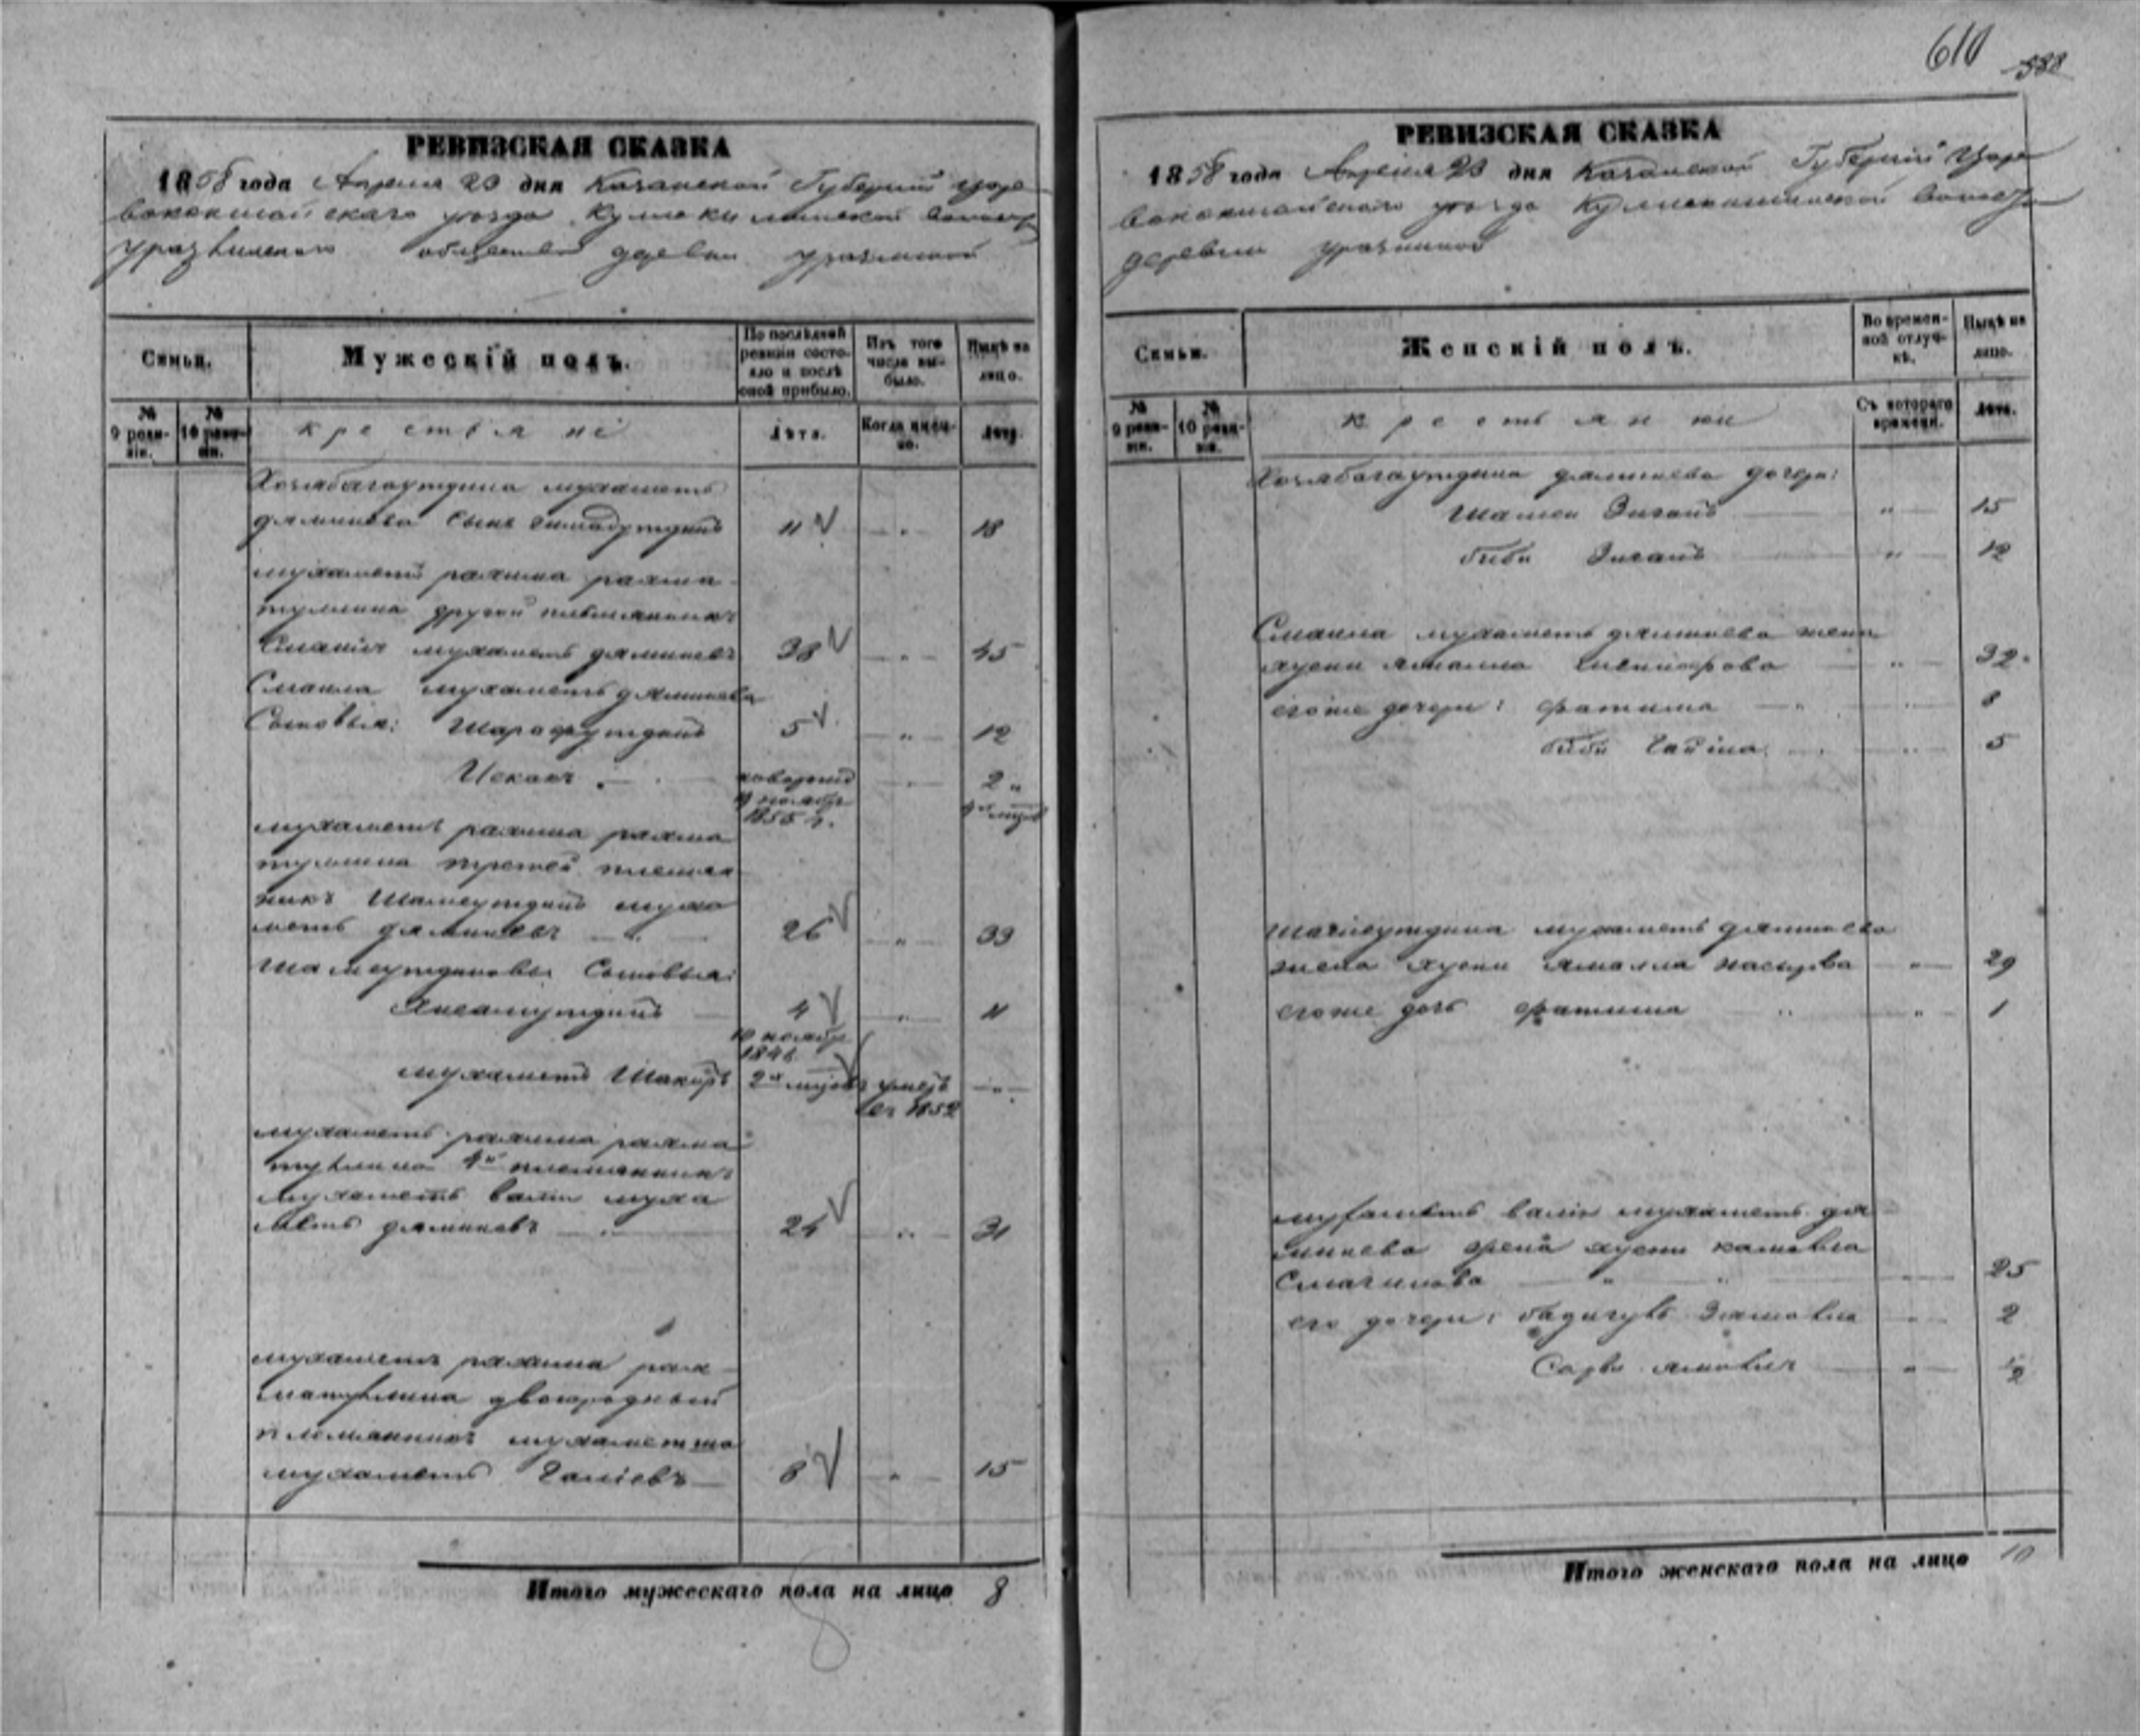 610 588
РЕВИЗСКАЯ СКАЗКА
1858 года Апреля 23 дня Казанской Губерніи Царе
вококшайскаго уѣзда Кулле киминской волости
Уразлинскаго общества деревни Уразлиной
Семьи.
Мужескій полъ.
По послѣдней ревизіи состояло и послѣ оной прибыло.
Изъ того числа выбыло.
Нынѣ на лицо.
№ 9 ревизіи.
№ 10 ревизіи.
крестьяне
Лѣта.
Когда именно.
Лѣта.
Хозябагаутдина мухаметъ
дяминева сынъ 11 18
мухаметъ рахима рахма
туллина другой племянникъ
Смаилъ мухаметъ дяминевъ 38 45
Смаила мухаметъ дяминева
Сыновья: Шарафутдинъ 5 12
Исхакъ новорожд 2
9 ноября
1855 г. мцов
мухаметъ рахима рахма
туллина третей племян
никъ Шамсутдинъ муха
метъ дяминевъ 26 33
Шамсутдиновы Сыновья:
4 11
10 ноябр
184
мухаметъ Шакиръ 2х мцов умеръ
въ 1852
мухаметъ рахима рахма
туллина 4й племянникъ
мухаметъ вали муха
метъ дяминевъ 24 31
мухаметъ рахима рах
матуллина двоюродный
племянникъ мухаметша
мухаметъ Галіевъ 8 15
Итого мужескаго пола на лицо 8
8
РЕВИЗСКАЯ СКАЗКА
1858 года Апреля 23 дня Казанской Губерніи Царе
вококшайскаго уѣзда Куллекиминской волости
деревни Уразлиной
Семьи.
Женскій полъ.
Во временной отлучкѣ.
Нынѣ на лицо.
№ 9 ревизіи.
№ 10 ревизіи.
крестьянки
Съ котораго времени.
Лѣта.
Хозябагаутдина дяминева дочери:
Шамси Зиганъ 15
биби Зиганъ 12
Смаила мухаметъ дяминева жена
хусни 32
егоже дочери: фатима 8
биби 5
Шамсутдина мухаметъ дяминева
жена хусни ямалла насырова 29
егоже дочь фатима 1
мухаметъ валія мухаметъ дя
минева жена хусни
Смагилова 25
его дочери: 2
1/2
Итого женскаго пола на лицо 10